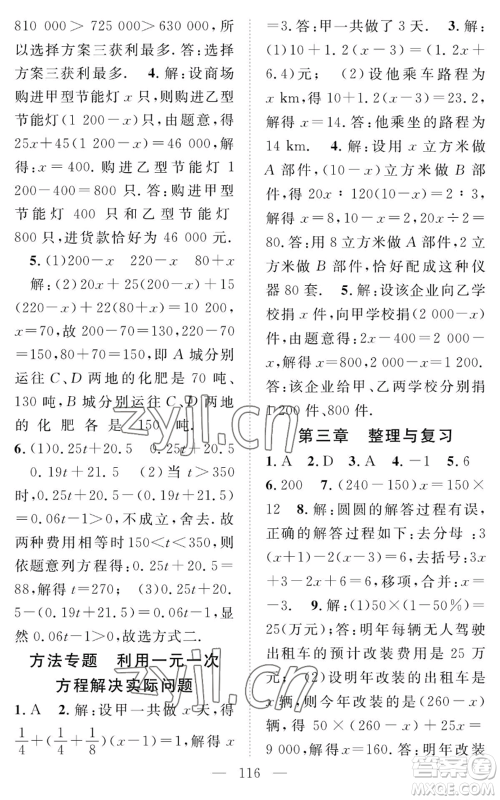 810 000＞725 000＞630 000，所
以选择方案三获利最多. 答：选择
方案三获利最多. 4. 解：设商场
购进甲型节能灯 x 只，则购进乙型
节能灯(1 200－x)只，由题意，得
25x＋45(1 200－x)＝46 000，解得
x＝400. 购进乙型节能灯 1
200－400＝800 只. 答：购进甲型
节能灯 400 只和乙型节能灯
800 只，进货款恰好为 46 000 元.
5. (1)200－x 220－x 80＋x
解：(2)20x＋25(200－x)＋15
(220－x)＋22(80＋x)＝10 070，
x＝70，则 200－x＝130，220－x
＝150，80＋70＝150，即 A 城分别
运往 C、D 两地的化肥是 70 吨、
130 吨，B 城分别运往 C、D 两地
的化肥各是 150 吨.
6. (1)0.25t＋20 0.25t＋20.5
0.19t＋21.5 (2)当 t＞350
时，0.25t＋20.5－(0.19t＋21.5)
＝0.06t－1＞0，不成立，舍去. 故
两种费用相等时 150＜t＜350，则
依题意列方程得：0.25t＋20.5＝
88，解得 t＝270； (3)0.25t＋
20.5－(0.19t＋21.5)＝0.06t－1
＞0，故选方式二.
方法专题 利用一元一次
方程解决实际问题
1. A 2. 解：设甲一共做 x 天，得
1/4＋(1/4＋1/8)(x－1)＝1. 解得 x
＝3. 答：甲一共做了 3 天. 3. 解：
(1)10＋1.2(x－3)＝(1.2x＋
6.4)元； (2)设他乘车路程为
x km，得 10＋1.2(x－3)＝23.2，
解得 x＝14. 答：他乘坐的路程为
14 km. 4. 解：设用 x 立方米做 A
部件，(10－x)立方米做 B 部件，
得 20x∶120(10－x)＝2∶3，
解得 x＝8，20x＝160，20x÷2＝
80(套). 答：最多能配成这种仪
器 80 套. 5. 解：设该企业向乙学
校捐 x 件，向甲学校捐(2 000－x)
件，由题意，得 2 000－x＝2x－
400，解得 x＝800，2 000－x＝
1 200. 答：该企业给甲、乙两学校分别捐
1 200 件、800 件.
第三章 整理与复习
1. A 2. D 3. A 4. －1 5. 6
6. 200 7. (240－150)x＝150×
12 8. 圆圆的解答过程有误，
正确的解答过程如下：去分母：
3(x＋1)－2(x－3)＝6，去括号：
3x＋3－2x＋6＝6，移项，合并：x
＝－3. 9. 解：(1)50×(1－50%)＝
25(万元). 答：明年每辆无人驾驶
出租车的预计改装费用是 25 万
元； (2)设明年改装的无人驾驶
出租车是 x 辆，则今年改装的
是(260－x)辆，依题意有
50(260－x)＋25x＝
9 000，解得 x＝160. 答：明年改装
116
zyjl.cn